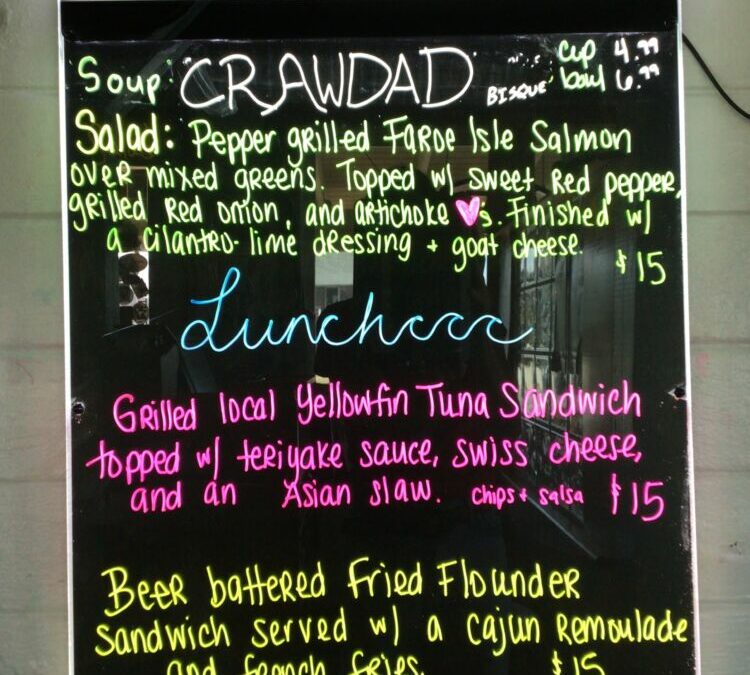 Soup: CRAWDAD BISQUE cup 4.99
bowl 6.99
Salad: Pepper grilled Faroe Isle Salmon
over mixed greens. Topped w/ sweet Red pepper,
grilled Red onion, and artichoke ♥s. Finished w/
a cilantro-lime dressing + goat cheese.
$15
Lunch
Grilled local Yellowfin Tuna Sandwich
topped w/ teriyake sauce, swiss cheese,
and an Asian slaw. chips + salsa $15
Beer battered fried Flounder
Sandwich served w/ a cajun Remoulade
and french fries. $15